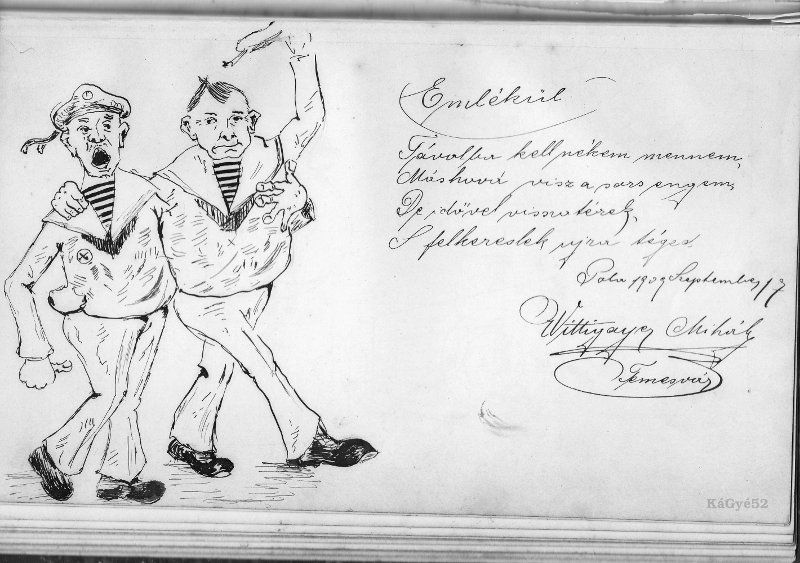 Emlékül
Távolba kell nékem mennem,
Máshová visz a sors engem,
De idővel visszatérek,
S felkereslek ujra téged.
Pola 1909 September 17
Mihály
Temesvár
KáGyé52